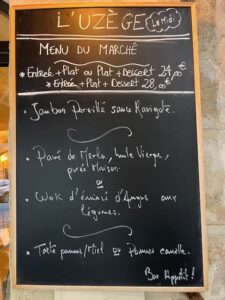 L'UZÈGE
Le Midi
MENU DU MARCHÉ
* Entrée + Plat ou Plat + Dessert 24,00€
* Entrée + Plat + Dessert 28,00€
• Jambon Persillé sauce Ravigote.
• Pavé de Merlu, huile Vierge,
purée Maison.
ou
• Wok d'émincé d'Angus aux
Légumes.
• Tarte pommes/Miel ou Pommes cannelle.
Bon Appétit !